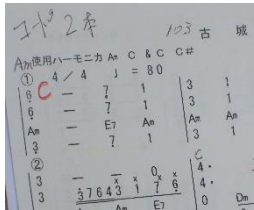 コード2本 103 古 城
Am使用ハーモニカ Am C & C C#
① 4/4 ♩=80
6 C — 7 1 | 3 1
6 — 7 1 | 3 1
Am — E7 Am | Am Am
3 — 7 1 | 3 1
② C
3 — — 0 4・
3 37643 1 7 6 4・
3 Am E7 0 Dm